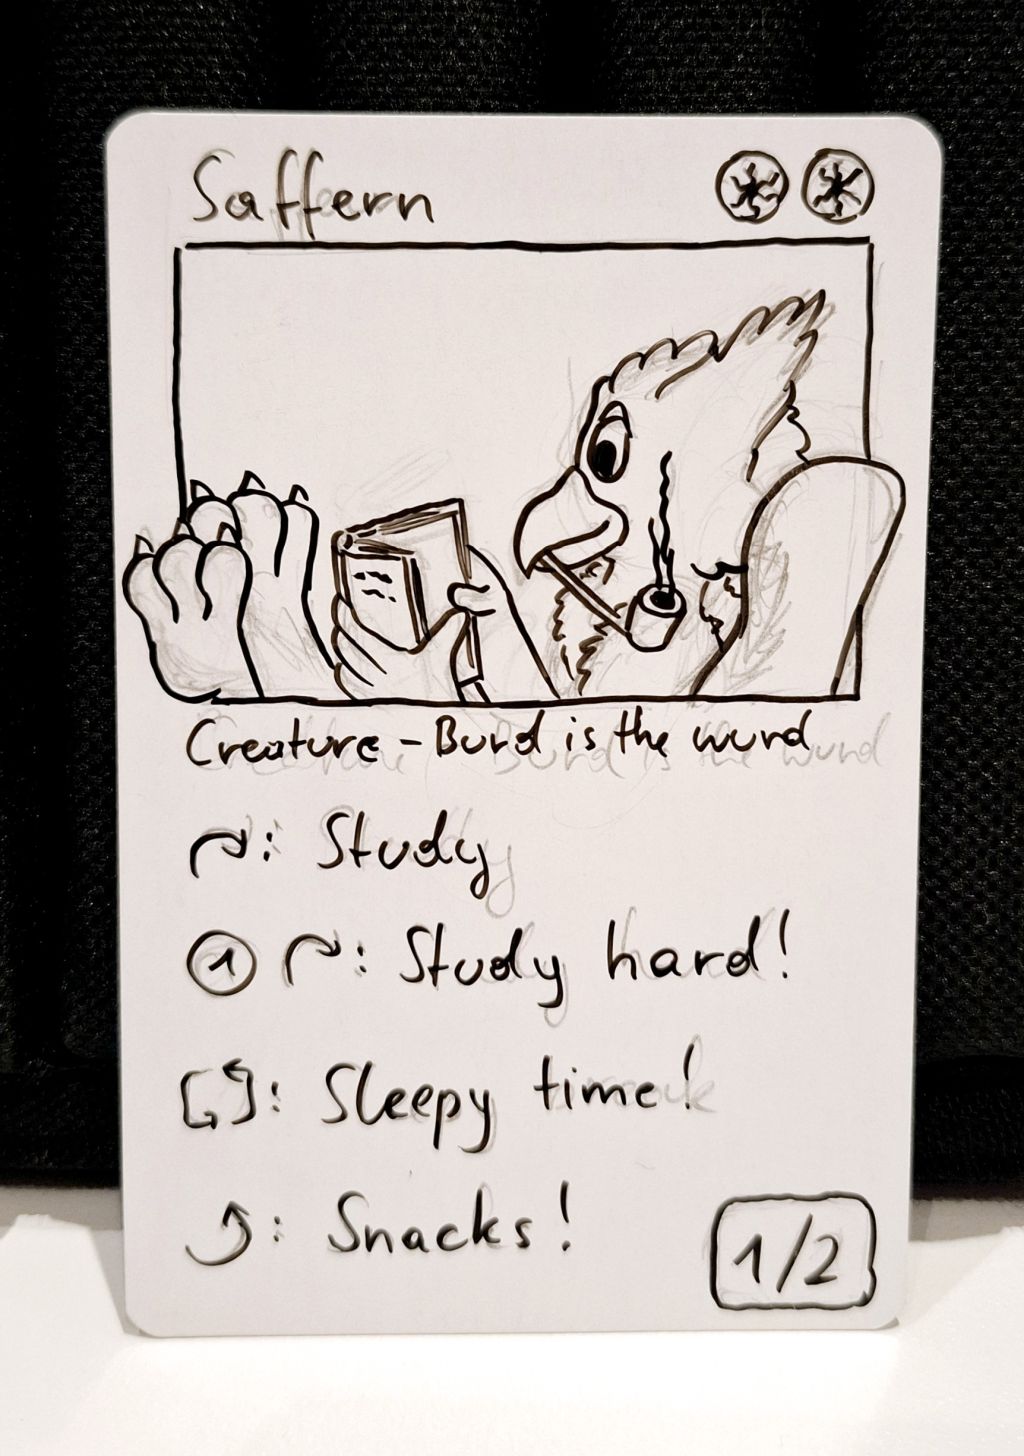 Saffern
Creature - Burd is the wurd
: Study
1 : Study hard!
: Sleepy time!
: Snacks!
1/2